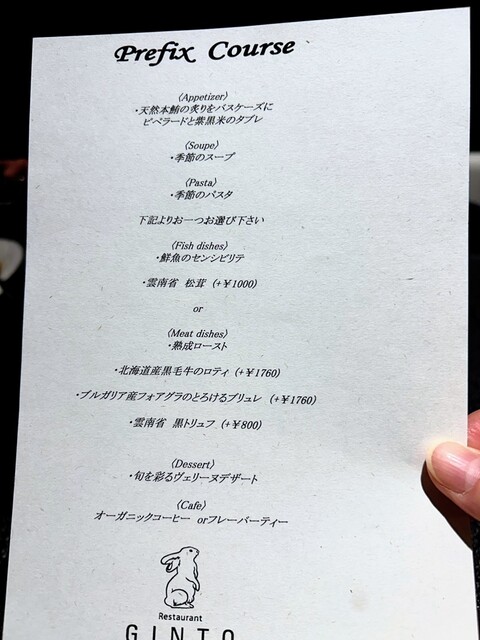 Prefix Course
〈Appetizer〉
・天然本鮪の炙りをバスケーズに
ピペラードと紫黒米のタブレ
〈Soupe〉
・季節のスープ
〈Pasta〉
・季節のパスタ
下記よりお一つお選び下さい
〈Fish dishes〉
・鮮魚のセンシビリテ
・雲南省 松茸 (+¥1000)
or
〈Meat dishes〉
・熟成ロースト
・北海道産黒毛牛のロティ (+¥1760)
・ブルガリア産フォアグラのとろけるブリュレ (+¥1760)
・雲南省 黒トリュフ (+¥800)
〈Dessert〉
・旬を彩るヴェリーヌデザート
〈Cafe〉
オーガニックコーヒー orフレーバーティー
Restaurant
GINTO